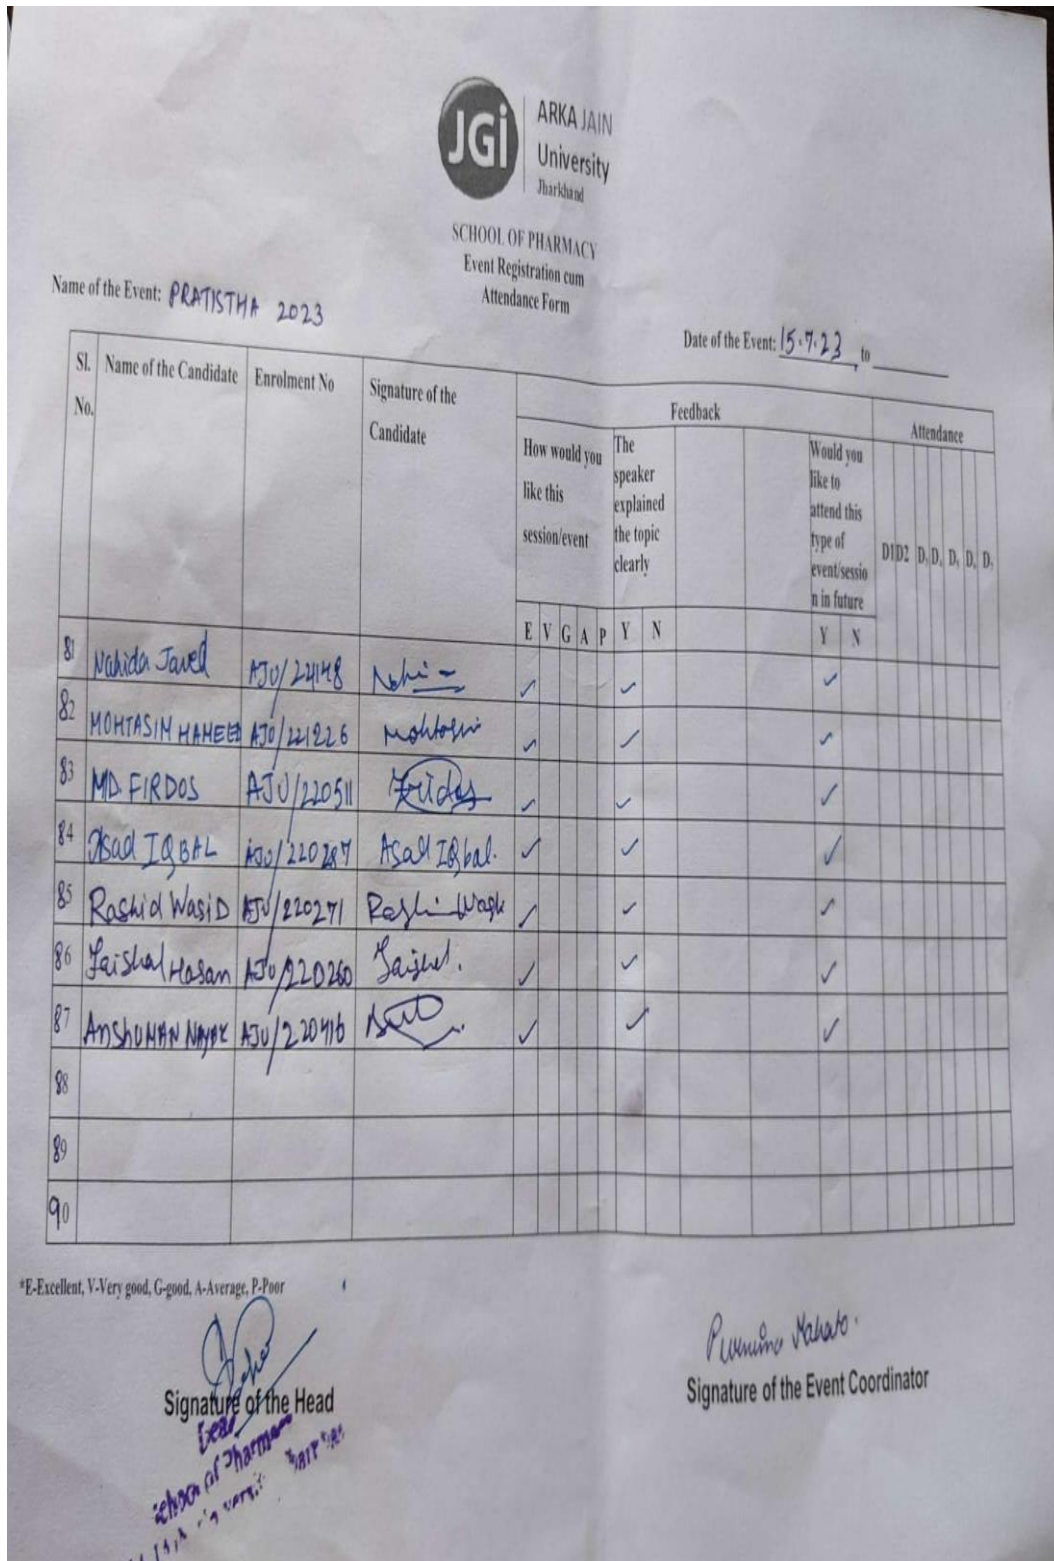 JGi
ARKA JAIN
University
Jharkhand
SCHOOL OF PHARMACY
Event Registration cum
Attendance Form
Name of the Event: PRATISTHA 2023
Date of the Event: 15.7.23 to
Sl. No. Name of the Candidate Enrolment No Signature of the Candidate Feedback Attendance
How would you like this session/event
The speaker explained the topic clearly
Would you like to attend this type of event/sessio n in future
D1 D2 D3 D4 D5 D6 D7
E V G A P Y N Y N
81 Nahida Javed ✓ ✓ ✓
82 MOHTASIM HAMEED AJU/221226 Mohtasim ✓ ✓ ✓
83 MD. FIRDOS AJU/220511 Firdos ✓ ✓ ✓
84 Asad IQBAL AJU/220287 Asad IQbal. ✓ ✓ ✓
85 Rashid WasiD AJU/220271 ✓ ✓ ✓
86 Faishal Hasan AJU/220260 Faishal. ✓ ✓ ✓
87 AnshUMAN NAYAK AJU/220416 ✓ ✓ ✓
88
89
90
*E-Excellent, V-Very good, G-good, A-Average, P-Poor
Purnima Mahato.
Signature of the Head
Signature of the Event Coordinator
School of Pharmacy